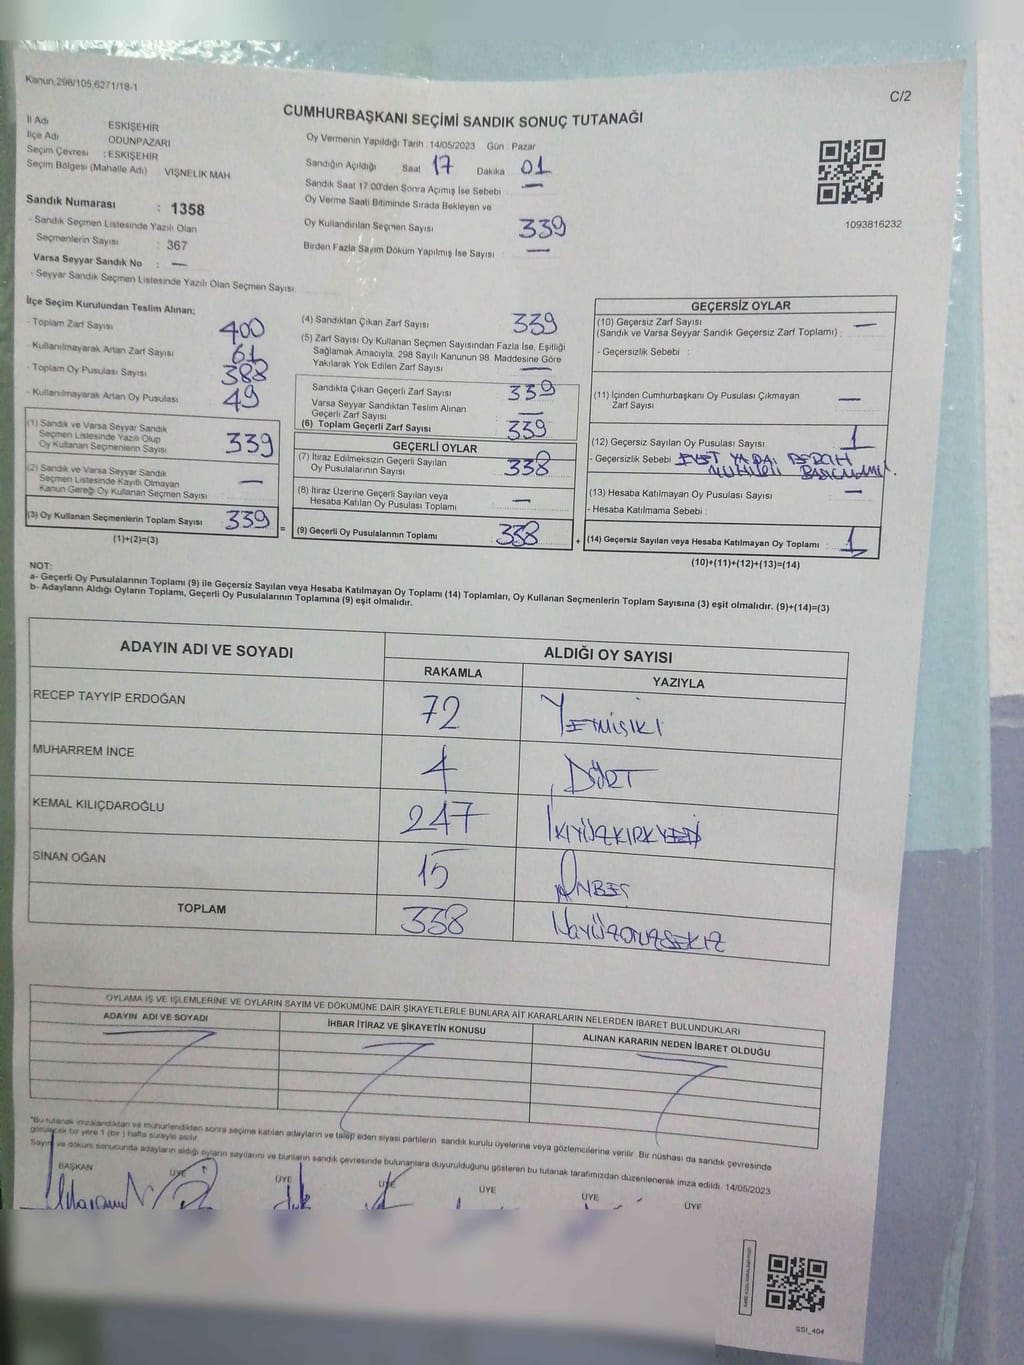 Kanun 298/105,6271/18-1
C/2
CUMHURBAŞKANI SEÇİMİ SANDIK SONUÇ TUTANAĞI
İl Adı ESKİŞEHİR
İlçe Adı ODUNPAZARI
Seçim Çevresi : ESKİŞEHİR
Seçim Bölgesi (Mahalle Adı) VİŞNELİK MAH
Oy Vermenin Yapıldığı Tarih 14/05/2023 Gün : Pazar
Sandığın Açıldığı Saat 17 Dakika 01
Sandık Saat 17.00'den Sonra Açımış İse Sebebi —
Oy Verme Saati Bitiminde Sırada Bekleyen ve
Oy Kullandırılan Seçmen Sayısı 339
Birden Fazla Sayım Döküm Yapılmış İse Sayısı —
1093816232
Sandık Numarası : 1358
- Sandık Seçmen Listesinde Yazılı Olan
Seçmenlerin Sayısı : 367
Varsa Seyyar Sandık No : —
- Seyyar Sandık Seçmen Listesinde Yazılı Olan Seçmen Sayısı
İlçe Seçim Kurulundan Teslim Alınan;
- Toplam Zarf Sayısı 400
- Kullanılmayarak Artan Zarf Sayısı 61
- Toplam Oy Pusulası Sayısı 388
- Kullanılmayarak Artan Oy Pusulası 49
(1) Sandık ve Varsa Seyyar Sandık
Seçmen Listesinde Yazılı Olup
Oy Kullanan Seçmenlerin Sayısı 339
(2) Sandık ve Varsa Seyyar Sandık
Seçmen Listesinde Kayıtlı Olmayan
Kanun Gereği Oy Kullanan Seçmen Sayısı —
(3) Oy Kullanan Seçmenlerin Toplam Sayısı 339 =
(1)+(2)=(3)
(4) Sandıktan Çıkan Zarf Sayısı 339
(5) Zarf Sayısı Oy Kullanan Seçmen Sayısından Fazla İse, Eşitliği
Sağlamak Amacıyla, 298 Sayılı Kanunun 98. Maddesine Göre
Yakılarak Yok Edilen Zarf Sayısı —
Sandıkta Çıkan Geçerli Zarf Sayısı 339
Varsa Seyyar Sandıktan Teslim Alınan
Geçerli Zarf Sayısı —
(6) Toplam Geçerli Zarf Sayısı 339
GEÇERLİ OYLAR
(7) İtiraz Edilmeksizin Geçerli Sayılan
Oy Pusulalarının Sayısı 338
(8) İtiraz Üzerine Geçerli Sayılan veya
Hesaba Katılan Oy Pusulası Toplamı —
(9) Geçerli Oy Pusulalarının Toplamı 338 +
GEÇERSİZ OYLAR
(10) Geçersiz Zarf Sayısı
(Sandık ve Varsa Seyyar Sandık Geçersiz Zarf Toplamı) : —
- Geçersizlik Sebebi :
(11) İçinden Cumhurbaşkanı Oy Pusulası Çıkmayan
Zarf Sayısı —
(12) Geçersiz Sayılan Oy Pusulası Sayısı 1
- Geçersizlik Sebebi EVET YADA TERCİH
MÜHÜRÜ BASILMAMIŞ
(13) Hesaba Katılmayan Oy Pusulası Sayısı —
- Hesaba Katılmama Sebebi :
(14) Geçersiz Sayılan veya Hesaba Katılmayan Oy Toplamı : 1
(10)+(11)+(12)+(13)=(14)
NOT:
a- Geçerli Oy Pusulalarının Toplamı (9) ile Geçersiz Sayılan veya Hesaba Katılmayan Oy Toplamı (14) Toplamları, Oy Kullanan Seçmenlerin Toplam Sayısına (3) eşit olmalıdır. (9)+(14)=(3)
b- Adayların Aldığı Oyların Toplamı, Geçerli Oy Pusulalarının Toplamına (9) eşit olmalıdır.
ADAYIN ADI VE SOYADI ALDIĞI OY SAYISI
RAKAMLA YAZIYLA
RECEP TAYYİP ERDOĞAN 72 YETMİŞİKİ
MUHARREM İNCE 4 DÖRT
KEMAL KILIÇDAROĞLU 247 İKİYÜZKIRKYEDİ
SİNAN OĞAN 15 ONBEŞ
TOPLAM 338
OYLAMA İŞ VE İŞLEMLERİNE VE OYLARIN SAYIM VE DÖKÜMÜNE DAİR ŞİKAYETLERLE BUNLARA AİT KARARLARIN NELERDEN İBARET BULUNDUKLARI
ADAYIN ADI VE SOYADI İHBAR İTİRAZ VE ŞİKAYETİN KONUSU ALINAN KARARIN NEDEN İBARET OLDUĞU
"Bu tutanak imzalandıktan ve mühürlendikten sonra seçime katılan adayların ve talep eden siyasi partilerin sandık kurulu üyelerine veya gözlemcilerine verilir. Bir nüshası da sandık çevresinde
görülecek bir yere 1 (bir ) hafta süreyle asılır.
Sayım ve döküm sonucunda adayların aldığı oyların sayılarını ve bunların sandık çevresinde bulunanlara duyurulduğunu gösteren bu tutanak tarafımızdan düzenlenerek imza edildi. 14/05/2023
BAŞKAN ÜYE ÜYE ÜYE ÜYE ÜYE ÜYE
SSI_404